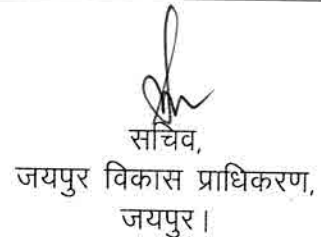 सचिव,
जयपुर विकास प्राधिकरण,
जयपुर।